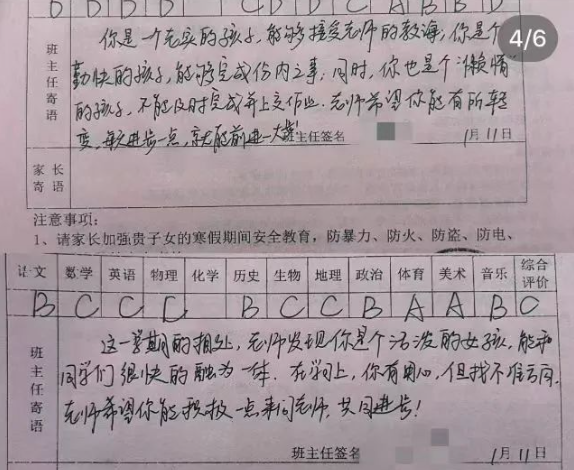 D D D D C D D C A B B D
4/6
班主任寄语
你是一个充实的孩子,能够接受老师的教诲;你是个
勤快的孩子,能够完成份内之事;同时,你也是个"懒惰"
的孩子,不能及时完成并上交作业.老师希望你能有所转
变,每天进步一点,就能前进一大步!
班主任签名 1月11日
家长寄语
注意事项:
1、请家长加强贵子女的寒假期间安全教育,防暴力、防火、防盗、防电、
语文 数学 英语 物理 化学 历史 生物 地理 政治 体育 美术 音乐 综合评价
B C C C B C C B A A B C
班主任寄语
这一学期的相处,老师发现你是个活泼的女孩,能和
同学们很快的融为一体.在学习上,你有用心,但找不准方向.
老师希望你能积极一点来问老师,共同进步!
班主任签名 1月11日